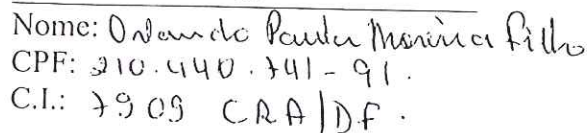 Nome: Orlando Paula Moreira Filho
CPF: 210.440.741-91.
C.I.: 7909 CRA/DF.